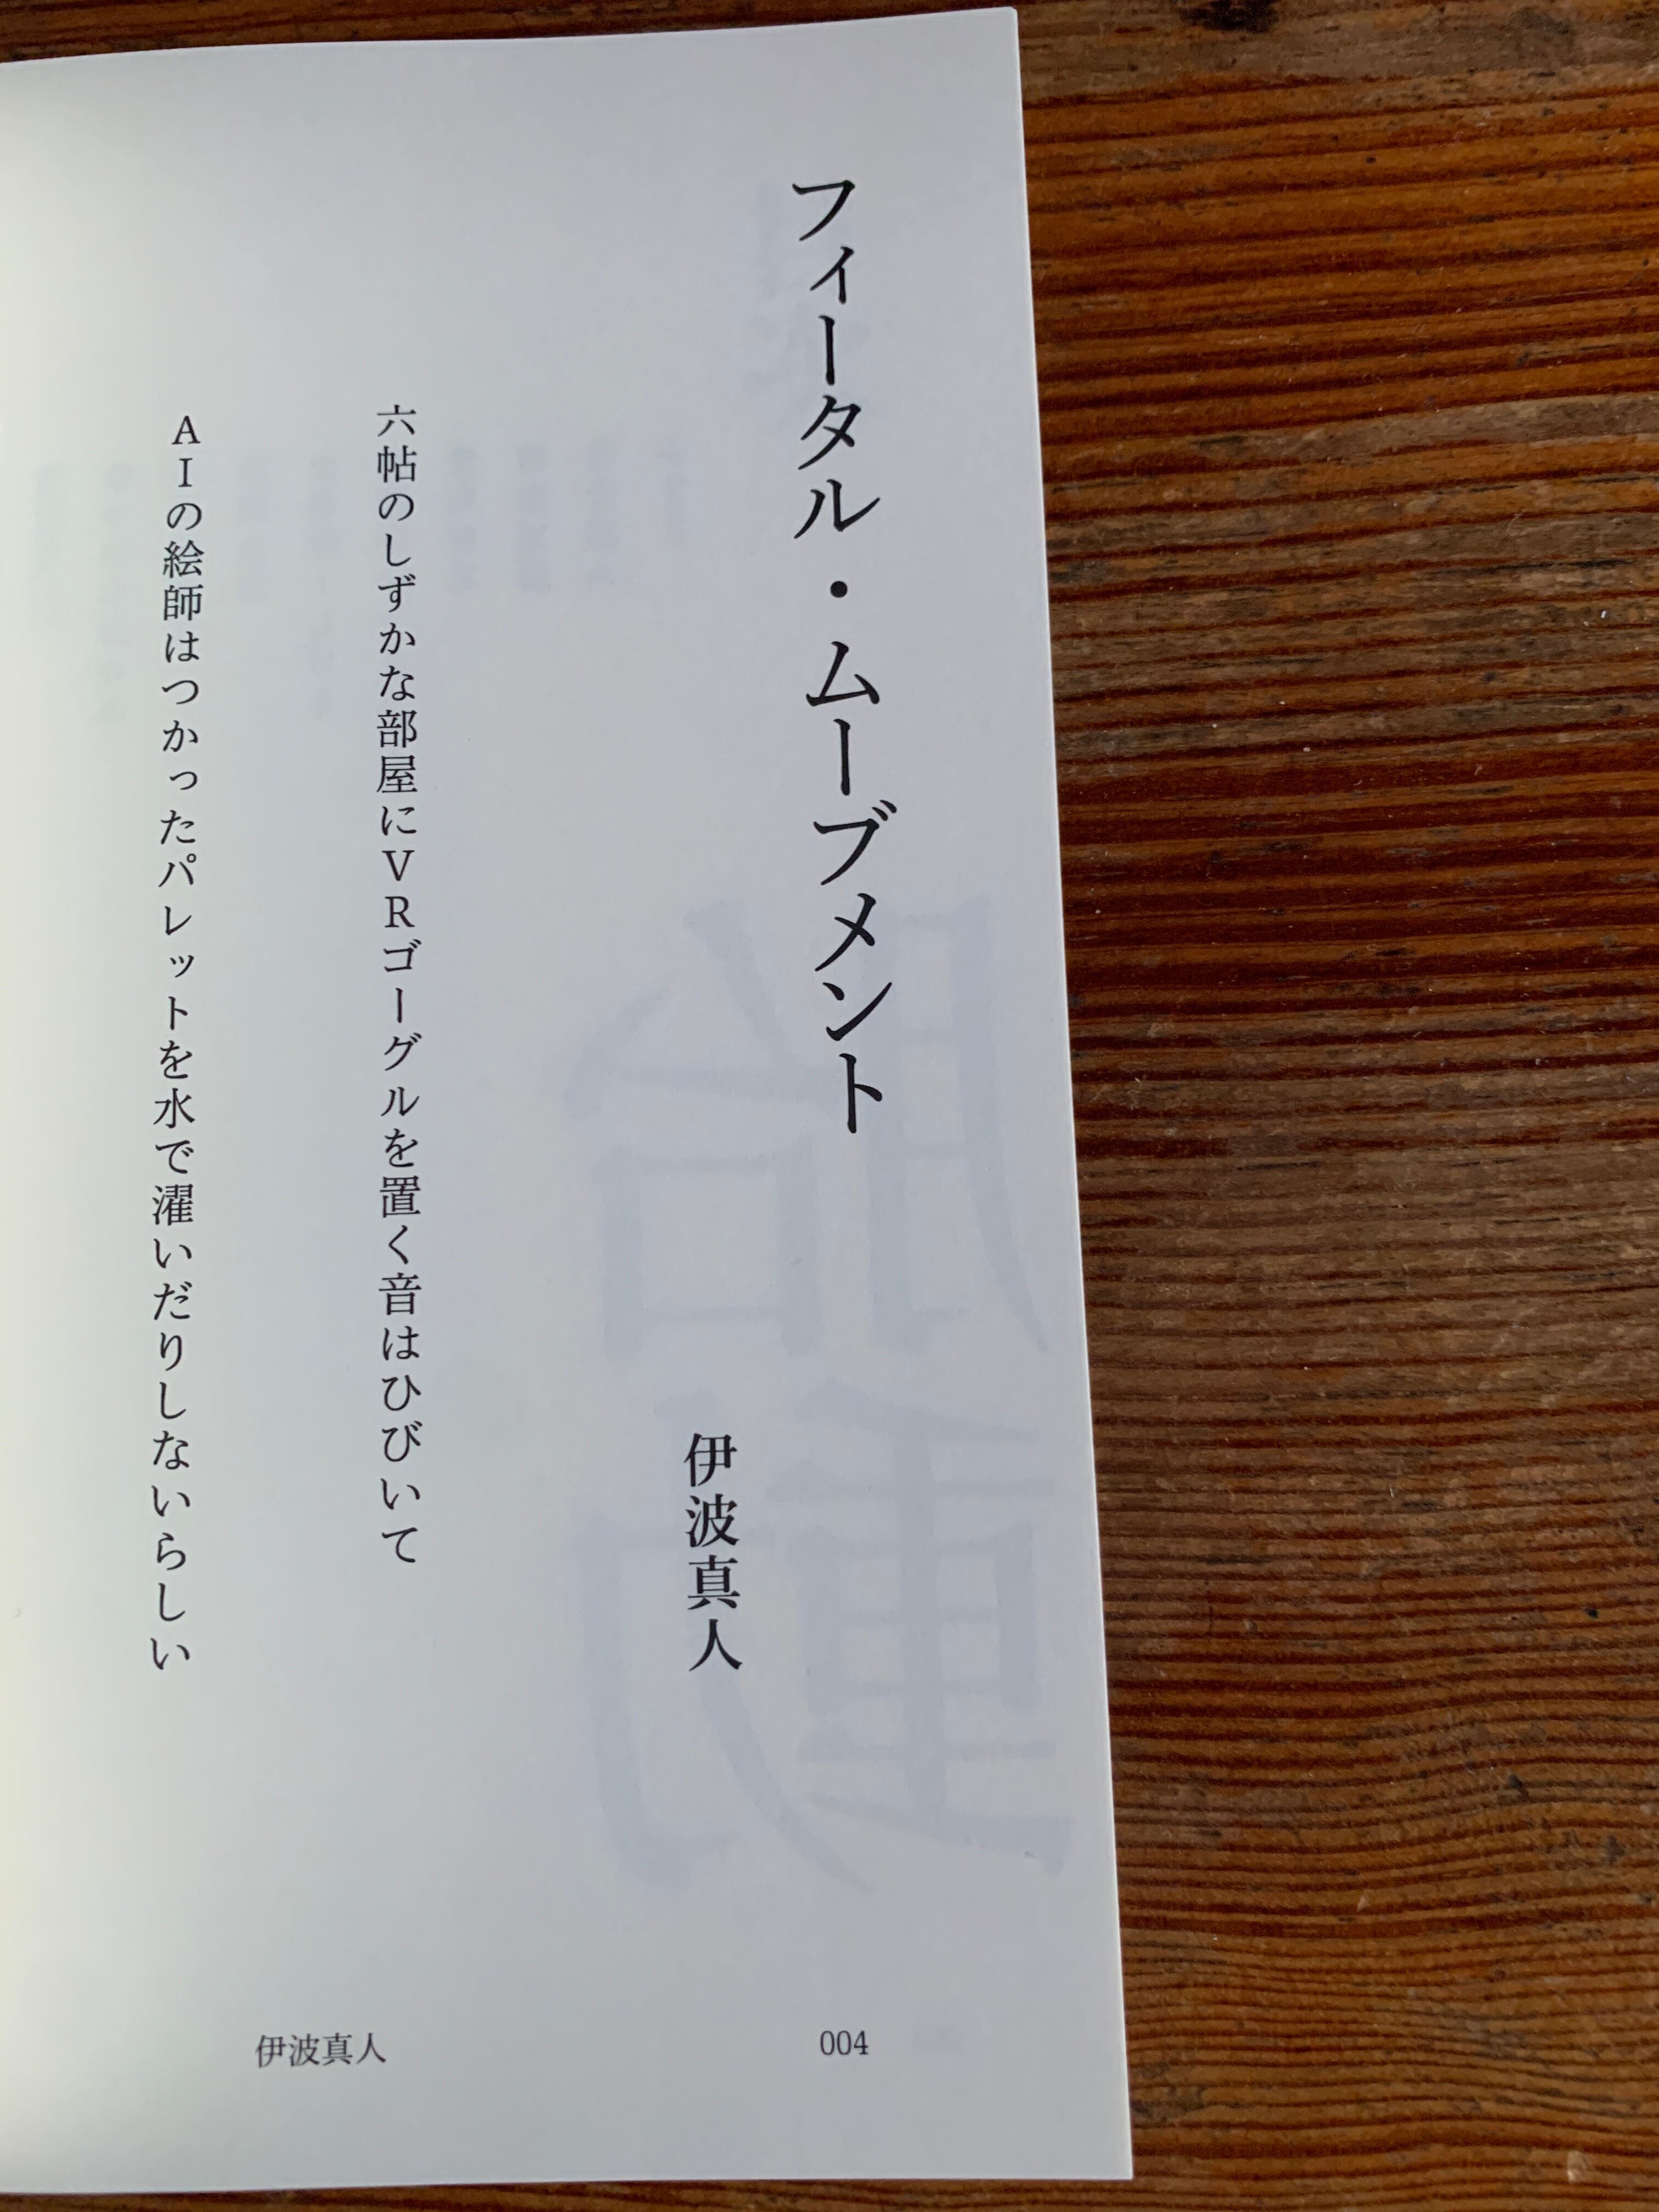 フィータル・ムーブメント
伊波真人
六帖のしずかな部屋にVRゴーグルを置く音はひびいて
AIの絵師はつかったパレットを水で濯いだりしないらしい
004
伊波真人